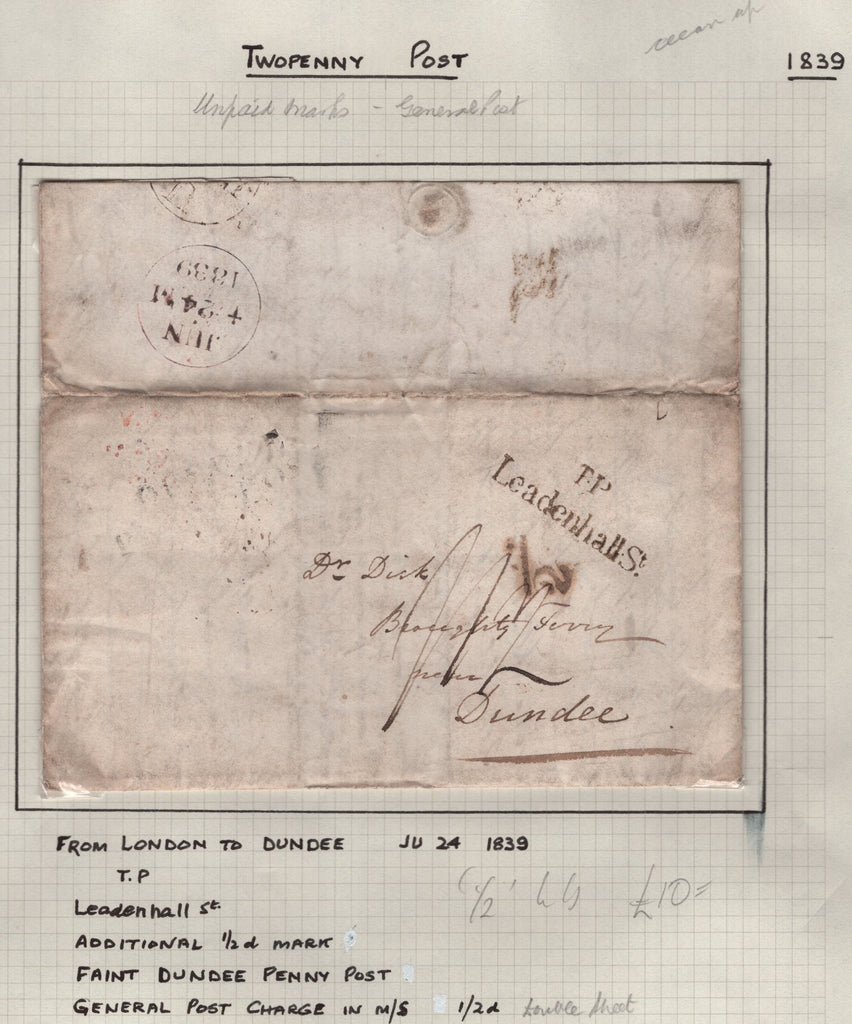 TWOPENNY POST
1839
Unpaid marks - General Post
JUN
24
1839
T.P
Leadenhall St.
1/2
Dr Dick
Broughty Ferry
near
Dundee
FROM LONDON TO DUNDEE JU 24 1839
T.P
Leadenhall St.
ADDITIONAL 1/2d MARK
FAINT DUNDEE PENNY POST
GENERAL POST CHARGE IN M/S 1/2d double sheet
'1/2' £10=